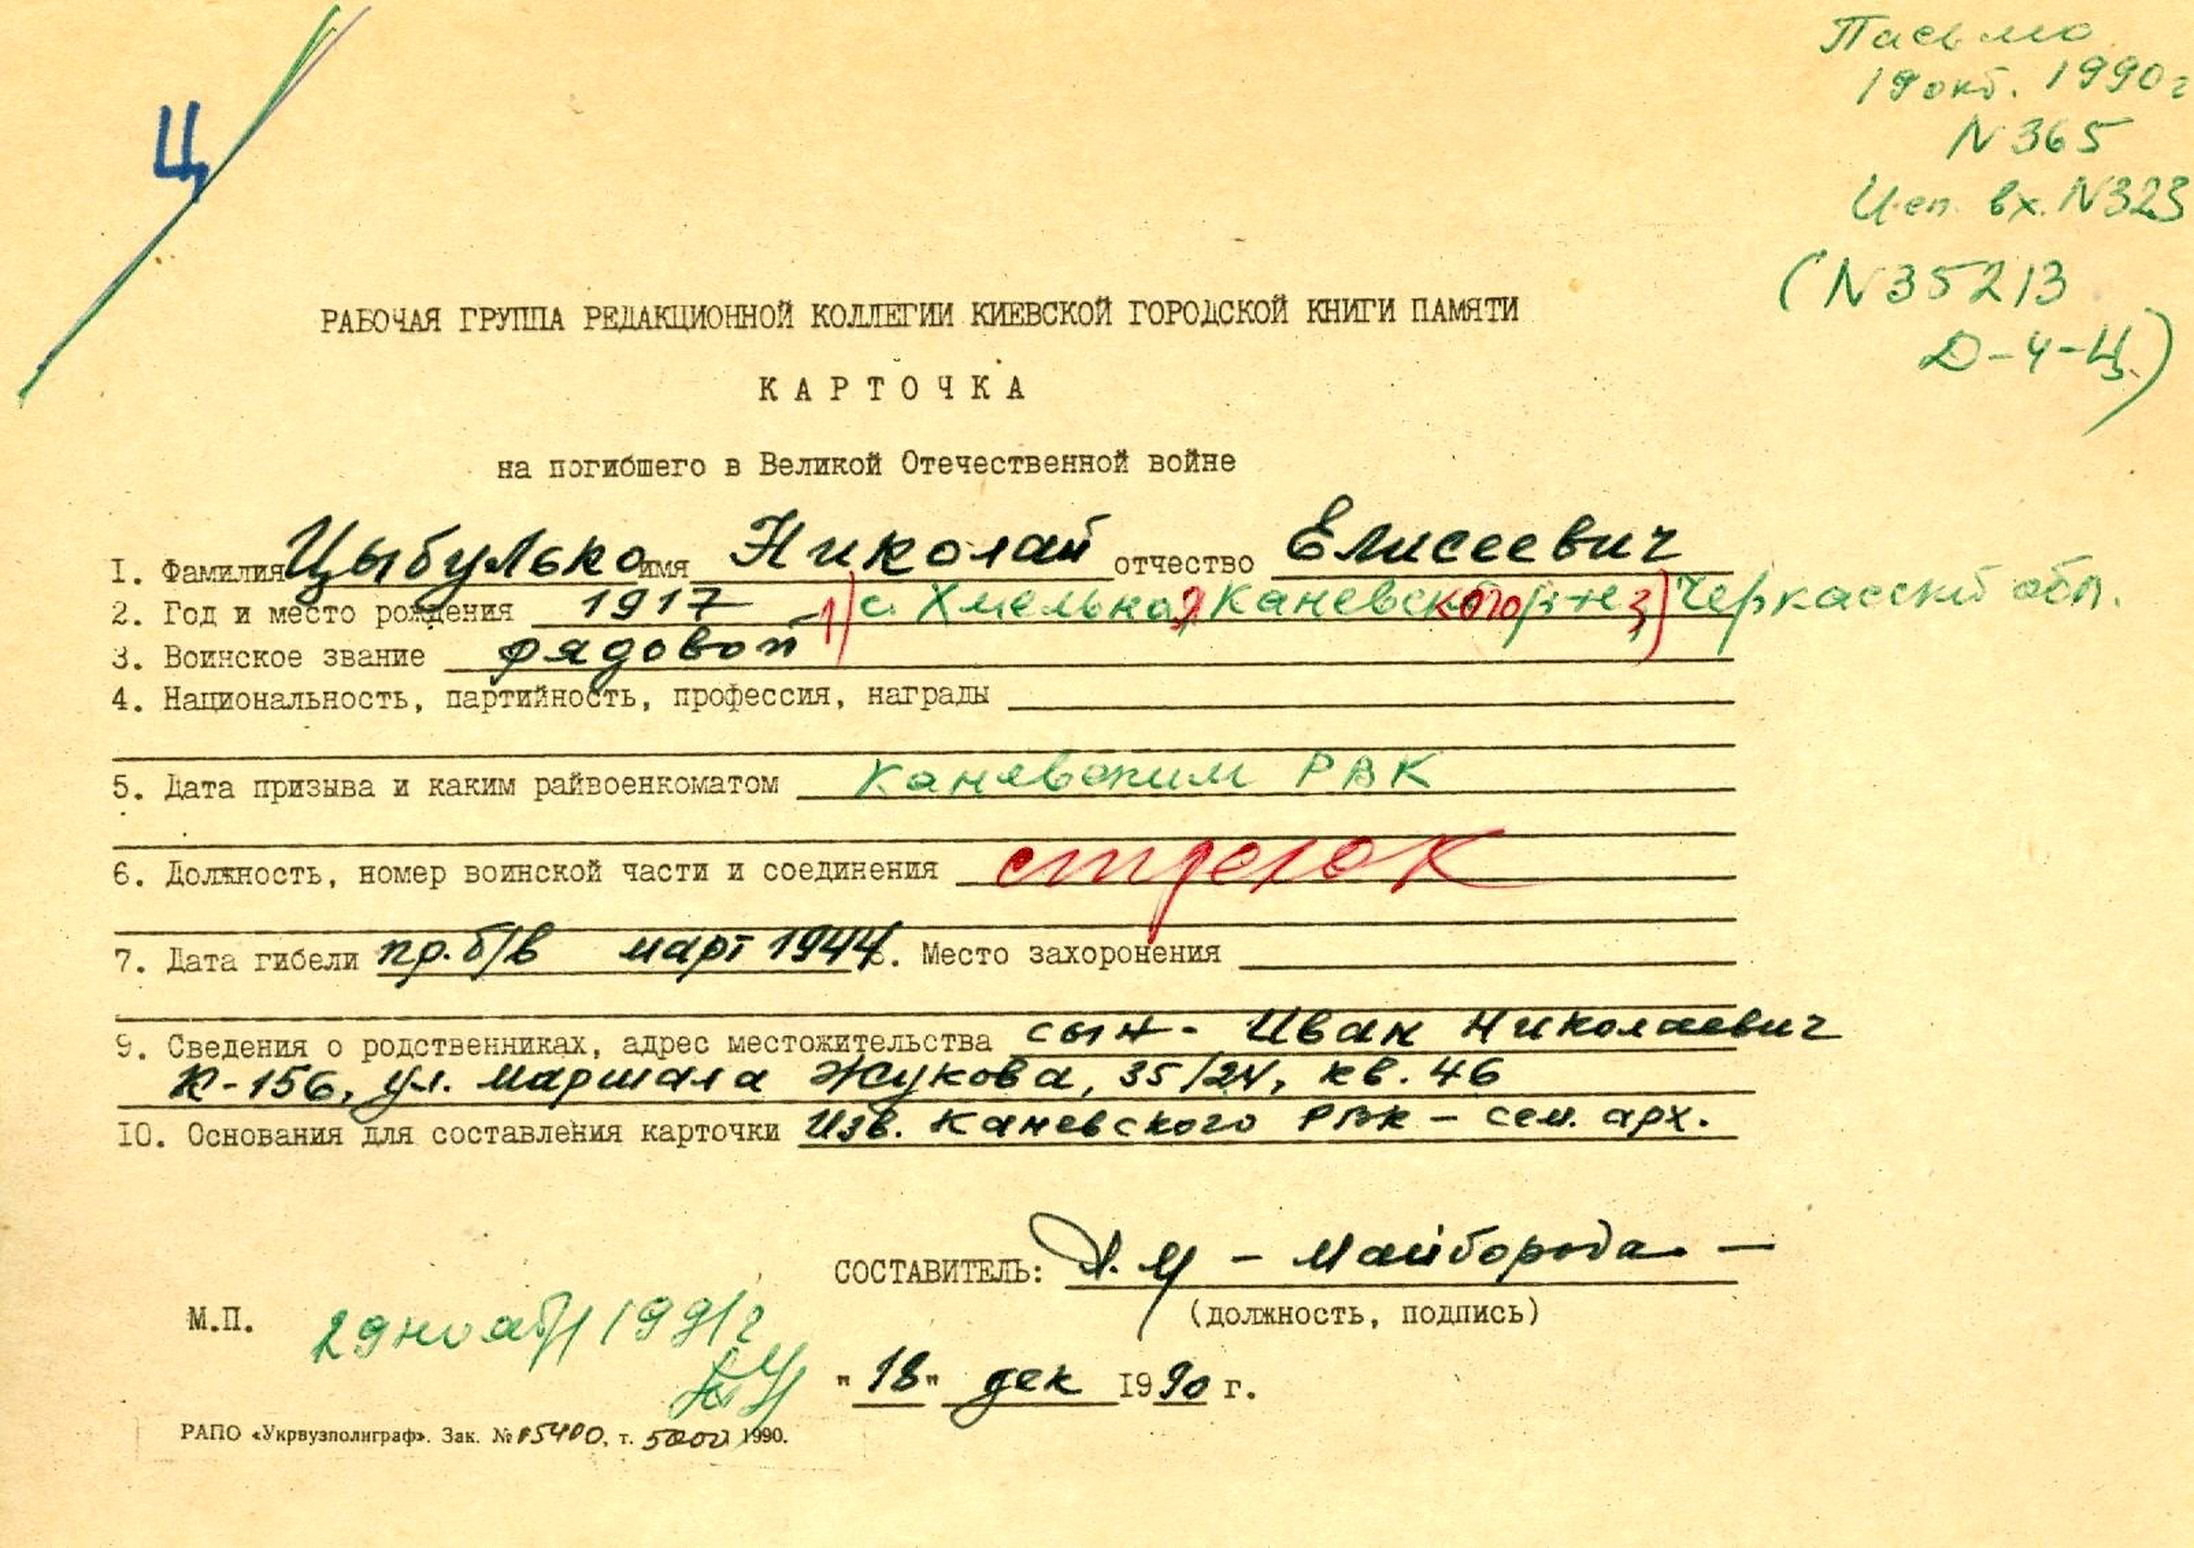 Ц
Письмо
19 окт. 1990 г
N 365
Исп. вх. N 323
(N 35213
Д-4-Ц)
РАБОЧАЯ ГРУППА РЕДАКЦИОННОЙ КОЛЛЕГИИ КИЕВСКОЙ ГОРОДСКОЙ КНИГИ ПАМЯТИ
КАРТОЧКА
на погибшего в Великой Отечественной войне
1. Фамилия Цыбулько имя Николай отчество Елисеевич
2. Год и место рождения 1917 1) с. Хмельна 2) Каневского р-н 3) Черкасской обл.
3. Воинское звание рядовой
4. Национальность, партийность, профессия, награды
5. Дата призыва и каким райвоенкоматом Каневским РВК
6. Должность, номер воинской части и соединения стрелок
7. Дата гибели пр. б/в март 1944 8. Место захоронения
9. Сведения о родственниках, адрес местожительства сын - Иван Николаевич
К-156, ул. Маршала Жукова, 35/24, кв. 46
10. Основания для составления карточки Изв. Каневского РВК - сем. арх.
СОСТАВИТЕЛЬ: - Майборода -
(должность, подпись)
М.П. 29 нояб 1991 г
"18" дек 1990 г.
РАПО «Укрвузполиграф». Зак. № 05400, т. 5000 1990.